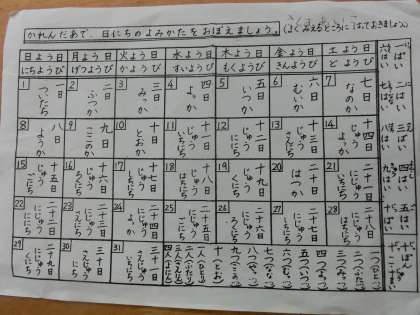 かれんだあで、日にちのよみかたをおぼえましょう。(よくみえるところにはっておきましょう。)
日よう日 月よう日 火よう日 水よう日 木よう日 金よう日 土よう日
にちようび げつようび かようび すいようび もくようび きんようび どようび
1 一日 ついたち
2 二日 ふつか
3 三日 みっか
4 四日 よっか
5 五日 いつか
6 六日 むいか
7 七日 なのか
8 八日 ようか
9 九日 ここのか
10 十日 とおか
11 十一日 じゅういちにち
12 十二日 じゅうににち
13 十三日 じゅうさんにち
14 十四日 じゅうよっか
15 十五日 じゅうごにち
16 十六日 じゅうろくにち
17 十七日 じゅうしちにち
18 十八日 じゅうはちにち
19 十九日 じゅうくにち
20 二十日 はつか
21 二十一日 にじゅういちにち
22 二十二日 にじゅうににち
23 二十三日 にじゅうさんにち
24 二十四日 にじゅうよっか
25 二十五日 にじゅうごにち
26 二十六日 にじゅうろくにち
27 二十七日 にじゅうしちにち
28 二十八日 にじゅうはちにち
29 二十九日 にじゅうくにち
30 三十日 さんじゅうにち
31 三十一日 さんじゅういちにち
一つ(ひとつ)
二つ(ふたつ)
三つ(みっつ)
四つ(よっつ)
五つ(いつつ)
六つ(むっつ)
七つ(ななつ)
八つ(やっつ)
九つ(ここのつ)
十(とお)
一人(ひとり)
二人(ふたり)
三人(さんにん)
四人(よにん)